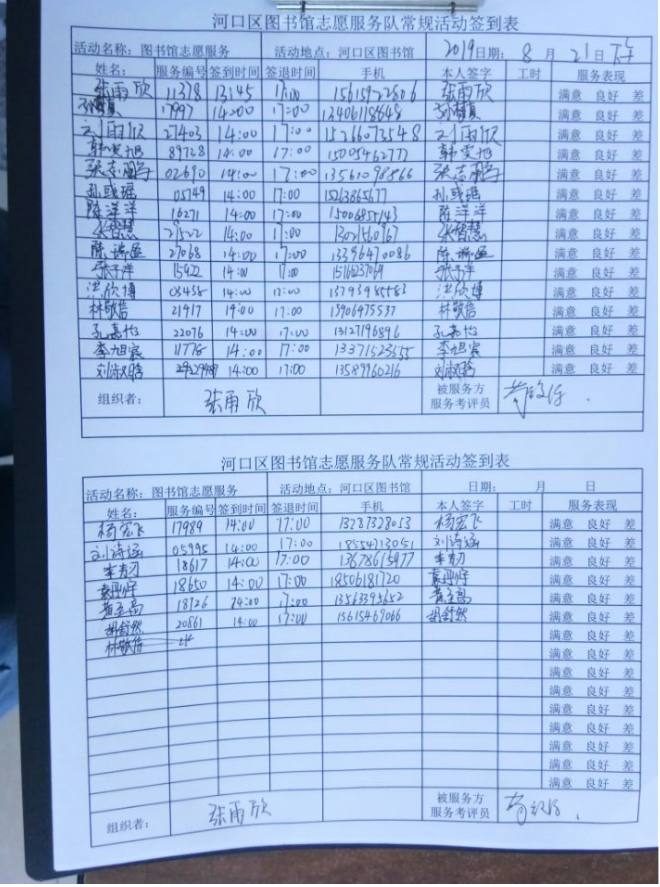 河口区图书馆志愿服务队常规活动签到表
活动名称：图书馆志愿服务 活动地点：河口区图书馆 2019日期：8月21日下午
姓名： 服务编号 签到时间 签退时间 手机 本人签字 工时 服务表现
张雨欣 11378 13:45 17:00 15615922806 张雨欣 满意 良好 差
17997 14:00 17:00 13406118648 满意 良好 差
刘雨欣 27403 14:00 17:00 15266073548 刘雨欣 满意 良好 差
韩雯旭 89728 14:00 17:00 15005462777 韩雯旭 满意 良好 差
张志鹏 02690 14:00 17:00 13561098566 张志鹏 满意 良好 差
05749 14:00 17:00 15263865677 满意 良好 差
陈洋洋 16271 14:00 17:00 15006855143 陈洋洋 满意 良好 差
张智慧 21522 14:00 17:00 张智慧 满意 良好 差
27068 14:00 17:00 13396470086 满意 良好 差
张予洋 15922 14:00 17:00 15166237069 张予洋 满意 良好 差
洪欣博 03458 14:00 17:00 13793985583 洪欣博 满意 良好 差
林敬信 21917 14:00 17:00 13906475537 林敬信 满意 良好 差
孔嘉怡 22076 14:00 17:00 13127196896 孔嘉怡 满意 良好 差
李旭宸 11778 14:00 17:00 13371523555 李旭宸 满意 良好 差
14:00 17:00 13589960216 满意 良好 差
组织者： 张雨欣 被服务方
服务考评员
河口区图书馆志愿服务队常规活动签到表
活动名称：图书馆志愿服务 活动地点：河口区图书馆 日期： 月 日
姓名： 服务编号 签到时间 签退时间 手机 本人签字 工时 服务表现
杨宏飞 17989 14:00 17:00 13287328053 杨宏飞 满意 良好 差
刘诗涵 05995 14:00 17:00 18554213051 刘诗涵 满意 良好 差
18617 14:00 17:00 13678615977 满意 良好 差
18650 14:00 17:00 18506181720 满意 良好 差
黄至高 18926 14:00 17:00 13563395652 黄至高 满意 良好 差
胡舒然 20861 14:00 17:00 15615469066 胡舒然 满意 良好 差
林敬信 满意 良好 差
满意 良好 差
满意 良好 差
满意 良好 差
满意 良好 差
满意 良好 差
满意 良好 差
满意 良好 差
组织者： 张雨欣 被服务方
服务考评员